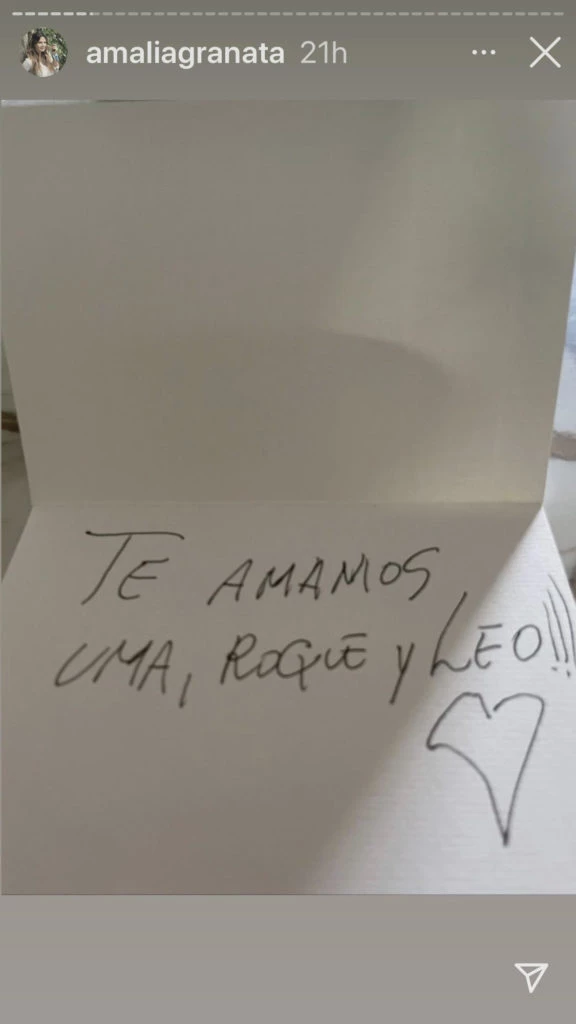 amaliagranata 21h
TE AMAMOS
UMA, ROQUE y LEO!!!